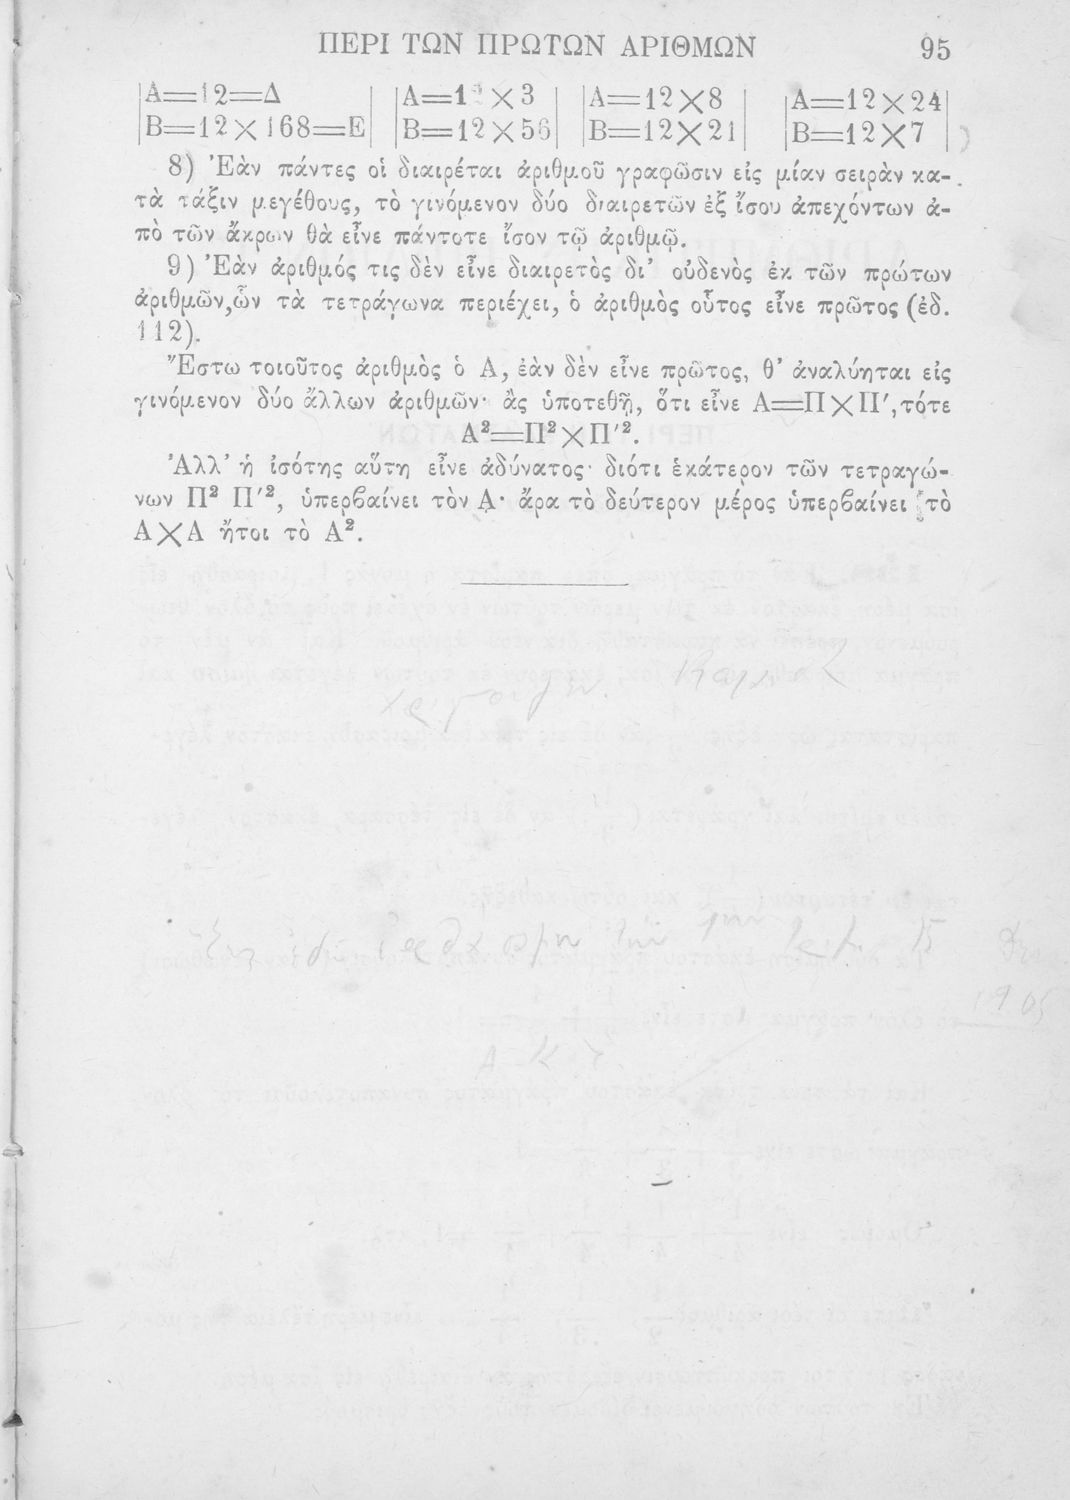 ΠΕΡΙ ΤΩΝ ΠΡΩΤΩΝ ΑΡΙΘΜΩΝ 95
|Α=12=Δ | |Α=12×3 | |Α=12×8 | |Α=12×24|
|Β=12×168=Ε| |Β=12×56| |Β=12×21| |Β=12×7 |
8) Ἐὰν πάντες οἱ διαιρέται ἀριθμοῦ γραφῶσιν εἰς μίαν σειρὰν κα-
τὰ τάξιν μεγέθους, τὸ γινόμενον δύο διαιρετῶν ἐξ ἴσου ἀπεχόντων ἀ-
πὸ τῶν ἄκρων θὰ εἶνε πάντοτε ἴσον τῷ ἀριθμῷ.
9) Ἐὰν ἀριθμός τις δὲν εἶνε διαιρετὸς δι' οὐδενὸς ἐκ τῶν πρώτων
ἀριθμῶν, ὧν τὰ τετράγωνα περιέχει, ὁ ἀριθμὸς οὗτος εἶνε πρῶτος (ἐδ.
112).
Ἔστω τοιοῦτος ἀριθμὸς ὁ Α, ἐὰν δὲν εἶνε πρῶτος, θ' ἀναλύηται εἰς
γινόμενον δύο ἄλλων ἀριθμῶν· ἂς ὑποτεθῇ, ὅτι εἶνε Α=Π×Π', τότε
Α²=Π²×Π'².
Ἀλλ' ἡ ἰσότης αὕτη εἶνε ἀδύνατος· διότι ἑκάτερον τῶν τετραγώ-
νων Π² Π'², ὑπερβαίνει τὸν Α· ἄρα τὸ δεύτερον μέρος ὑπερβαίνει τὸ
Α×Α ἤτοι τὸ Α².